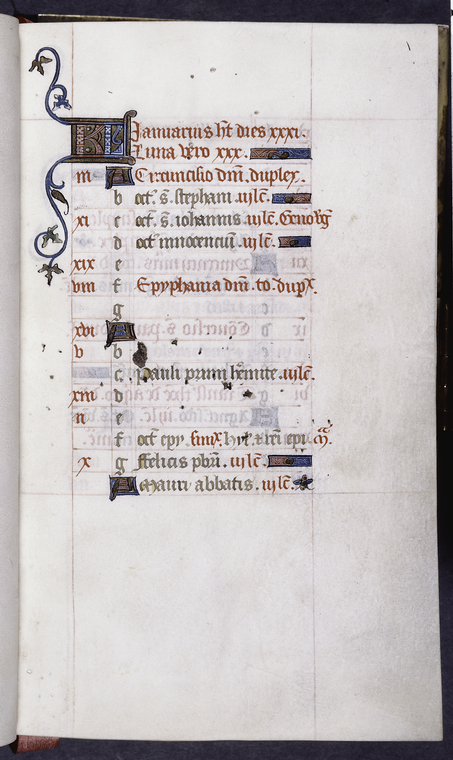 Januarius ht dies xxxi.
Luna vero xxx.
iii A Circuncisio dni. duplex.
b oct. s. stephani. iii lc.
xi c oct. s. iohannis. iii lc.
d oct innocenciu. iii lc.
xix e
viii f Epyphania dni. to. dupx.
g
xvi A
v b
c Pauli primi hemite. iii lc.
xiii d
ii e
f oct epy.
x g ffelicis pbri. iii lc.
A Mauri abbatis. iii lc.